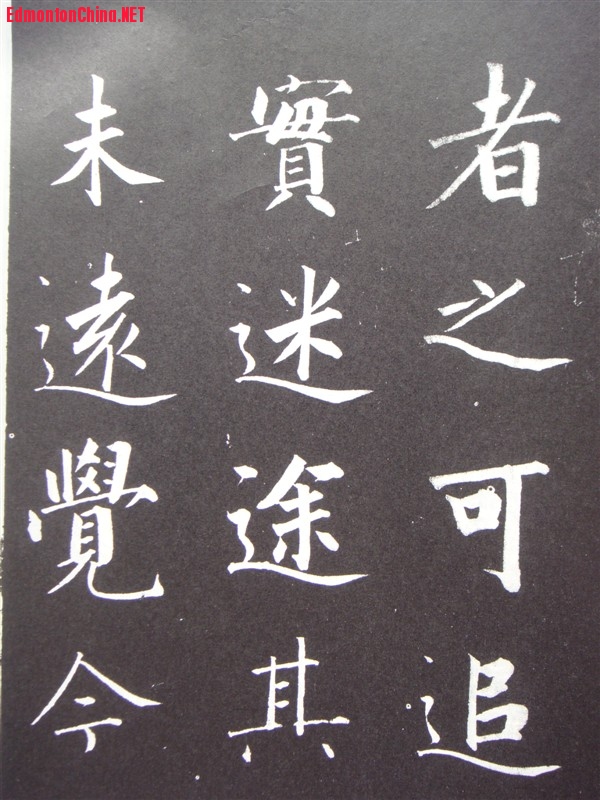 EdmontonChina.NET
者之可追
實迷途其
未遠覺今